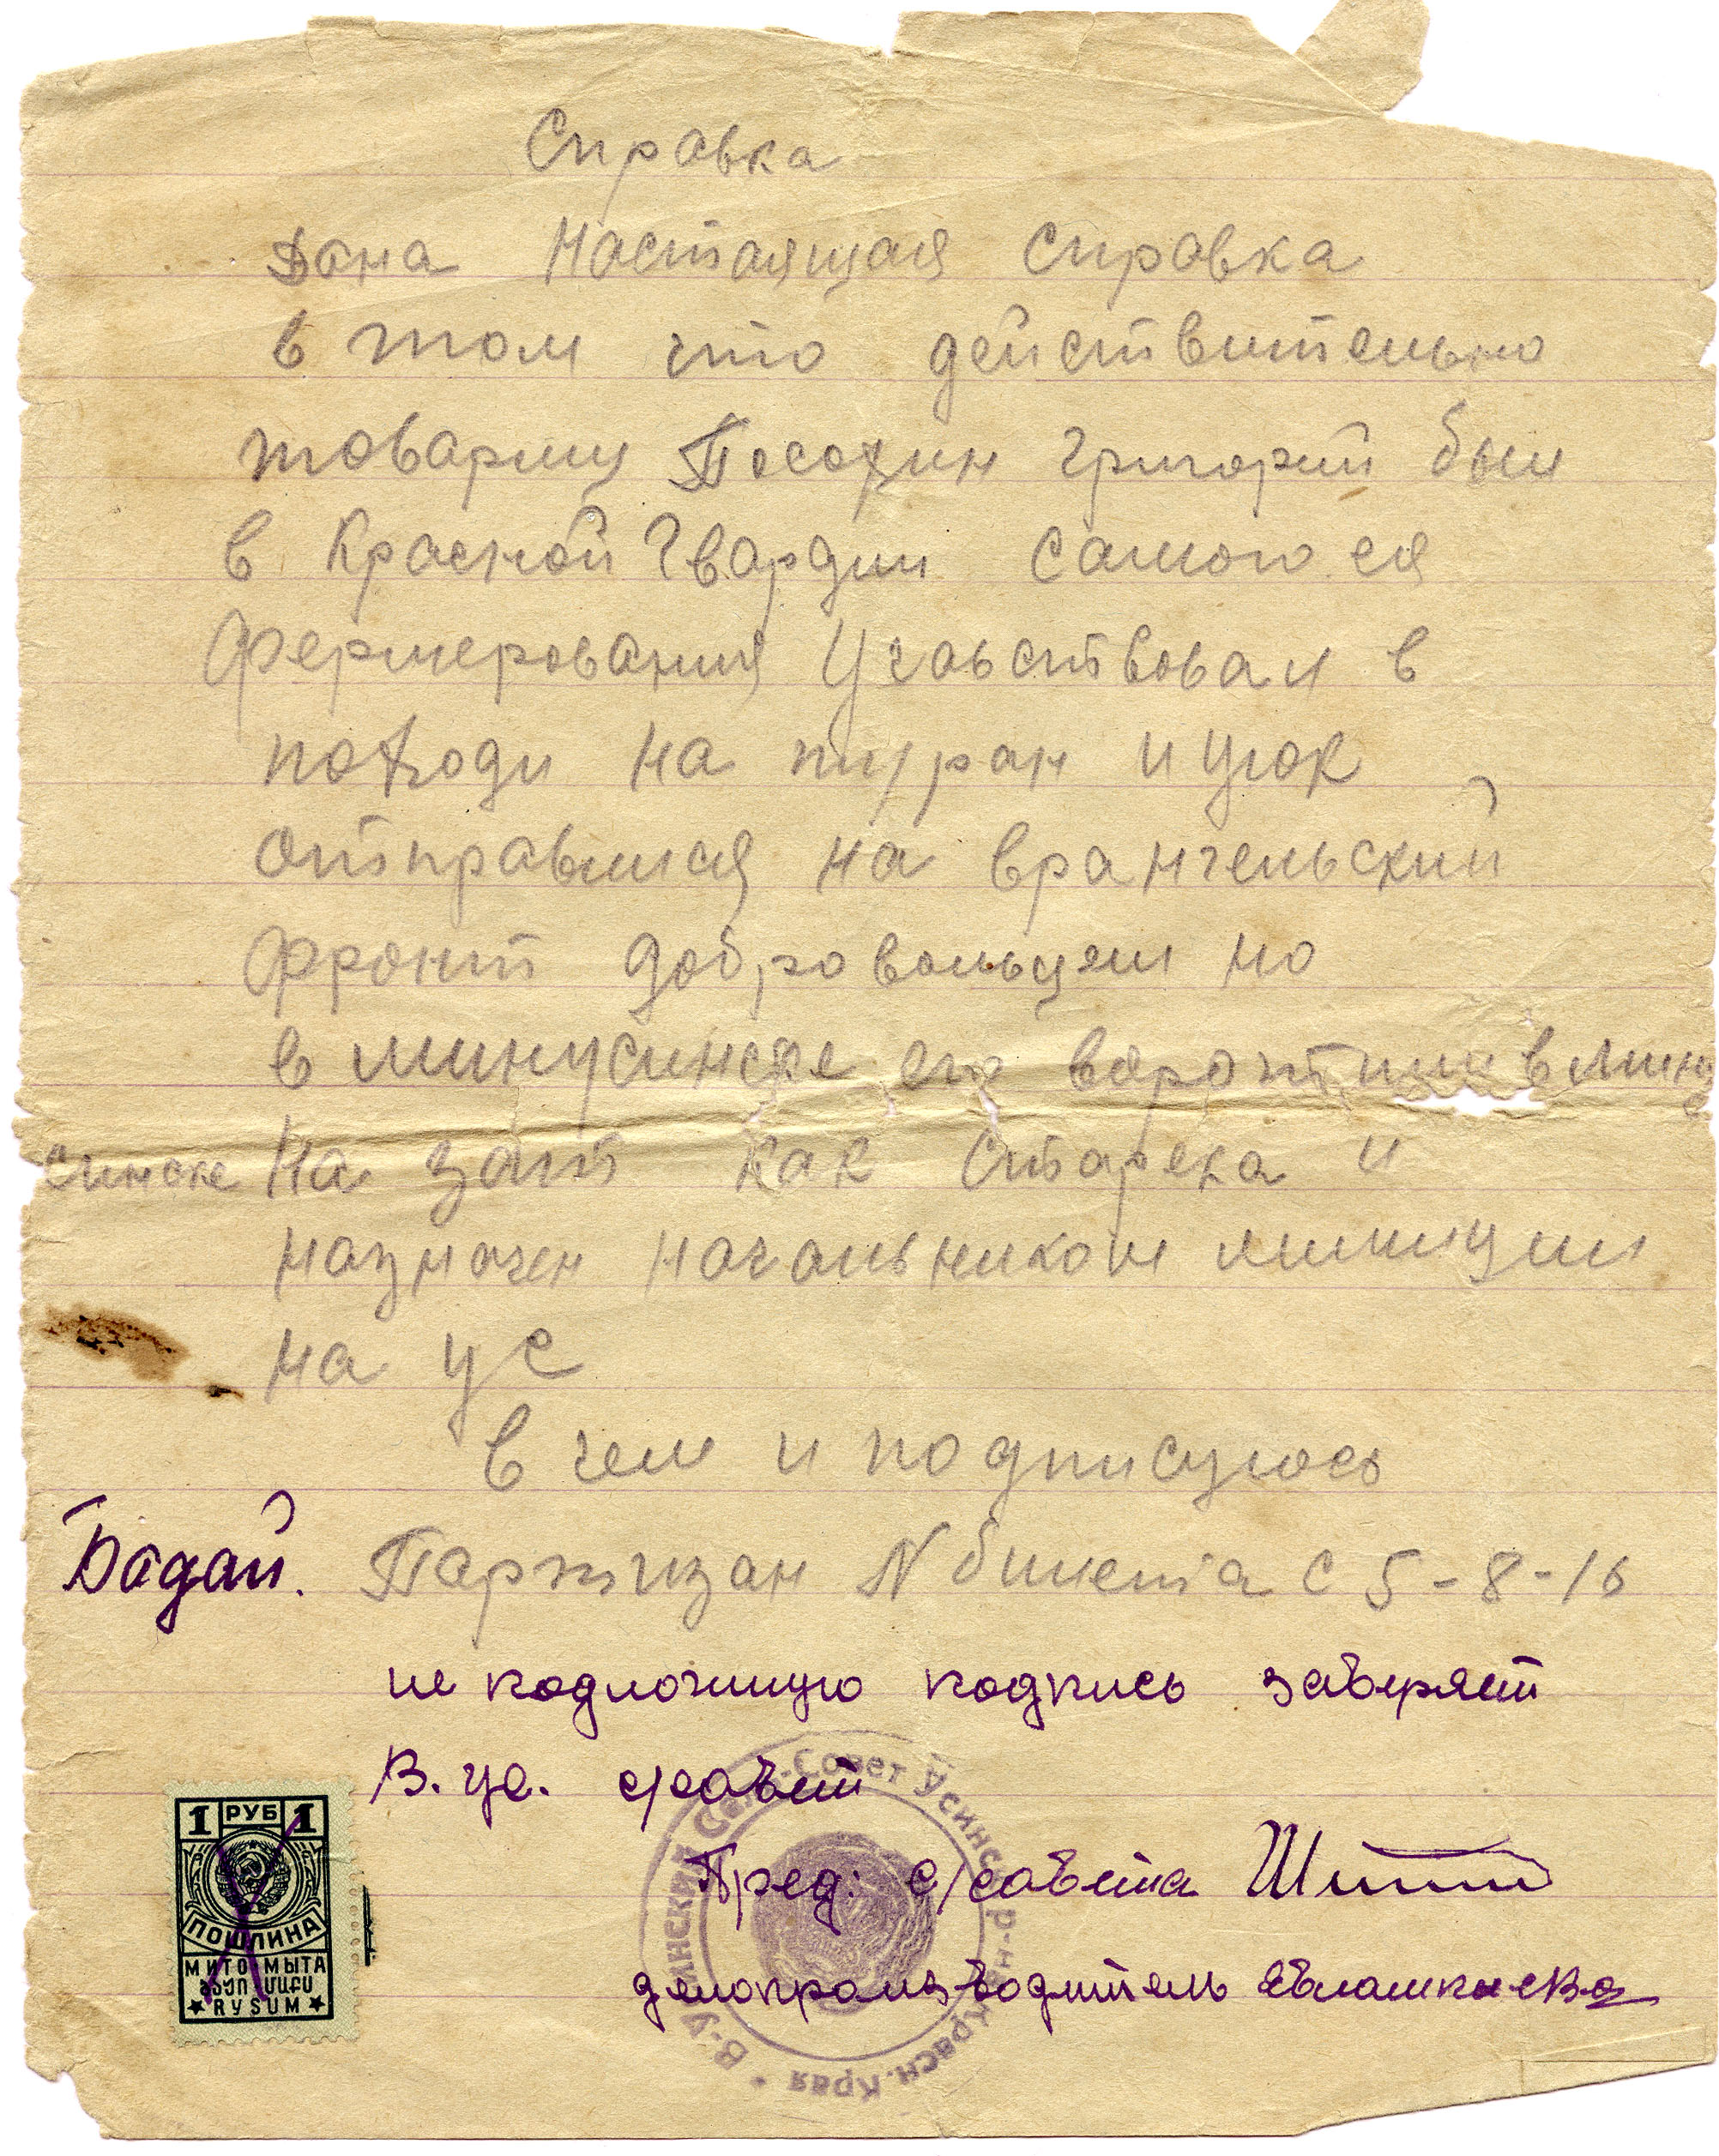 Справка
Дана Настаящая справка
в том что действительно
товарищ Посохин Григорий был
в Красной Гвардии самого ея
Фермерования Учавствовал в
походи на туран и усок
отправился на врангельский
фронт добровольцем но
в минусинске его воротили в Мину
синске На зат как старека и
назначен начальником милиции
на ус
в чем и подписуюсь
Бадай. Партизан N билета с 5-8-16
не подложную подпись заверяет
В. Ус. с/совет
Пред: с/совета
делопроизводитель
В-Усинский Сель-Совет Усинск. р-н Красн. Края
1 РУБ 1
ПОШЛИНА
МИТО МЫТА
ԲԱԺ
★ RYSUM ★